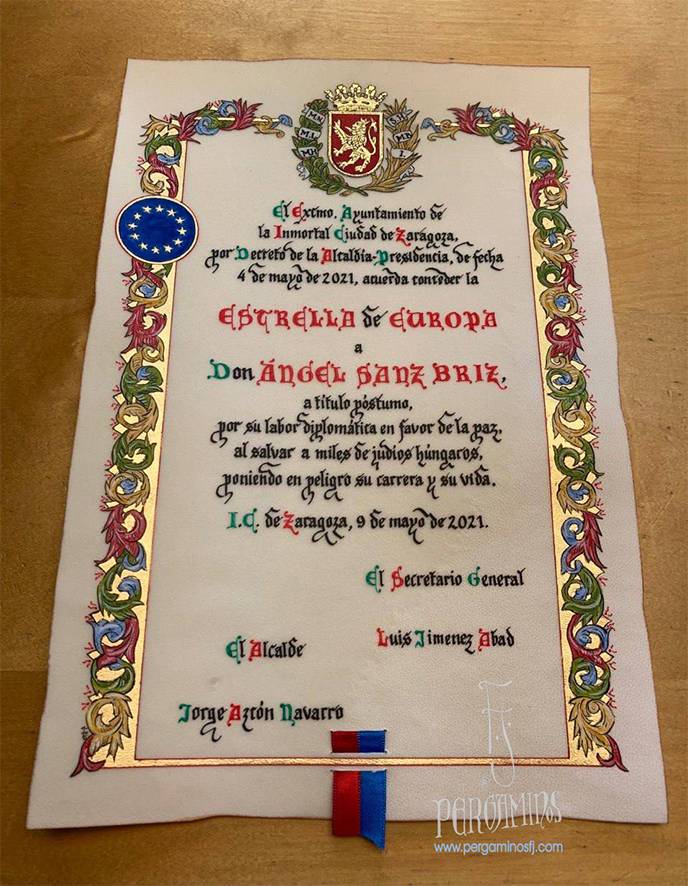 El Excmo. Ayuntamiento de
la Inmortal Ciudad de Zaragoza,
por Decreto de la Alcaldía-Presidencia, de fecha
4 de mayo de 2021, acuerda conceder la
ESTRELLA de EUROPA
a
Don ÁNGEL SANZ BRIZ,
a título póstumo,
por su labor diplomática en favor de la paz,
al salvar a miles de judíos húngaros,
poniendo en peligro su carrera y su vida.
I.C. de Zaragoza, 9 de mayo de 2021.
El Secretario General
Luis Jimenez Abad
El Alcalde
Jorge Azcón Navarro
FJ
PERGAMINOS
www.pergaminosfj.com